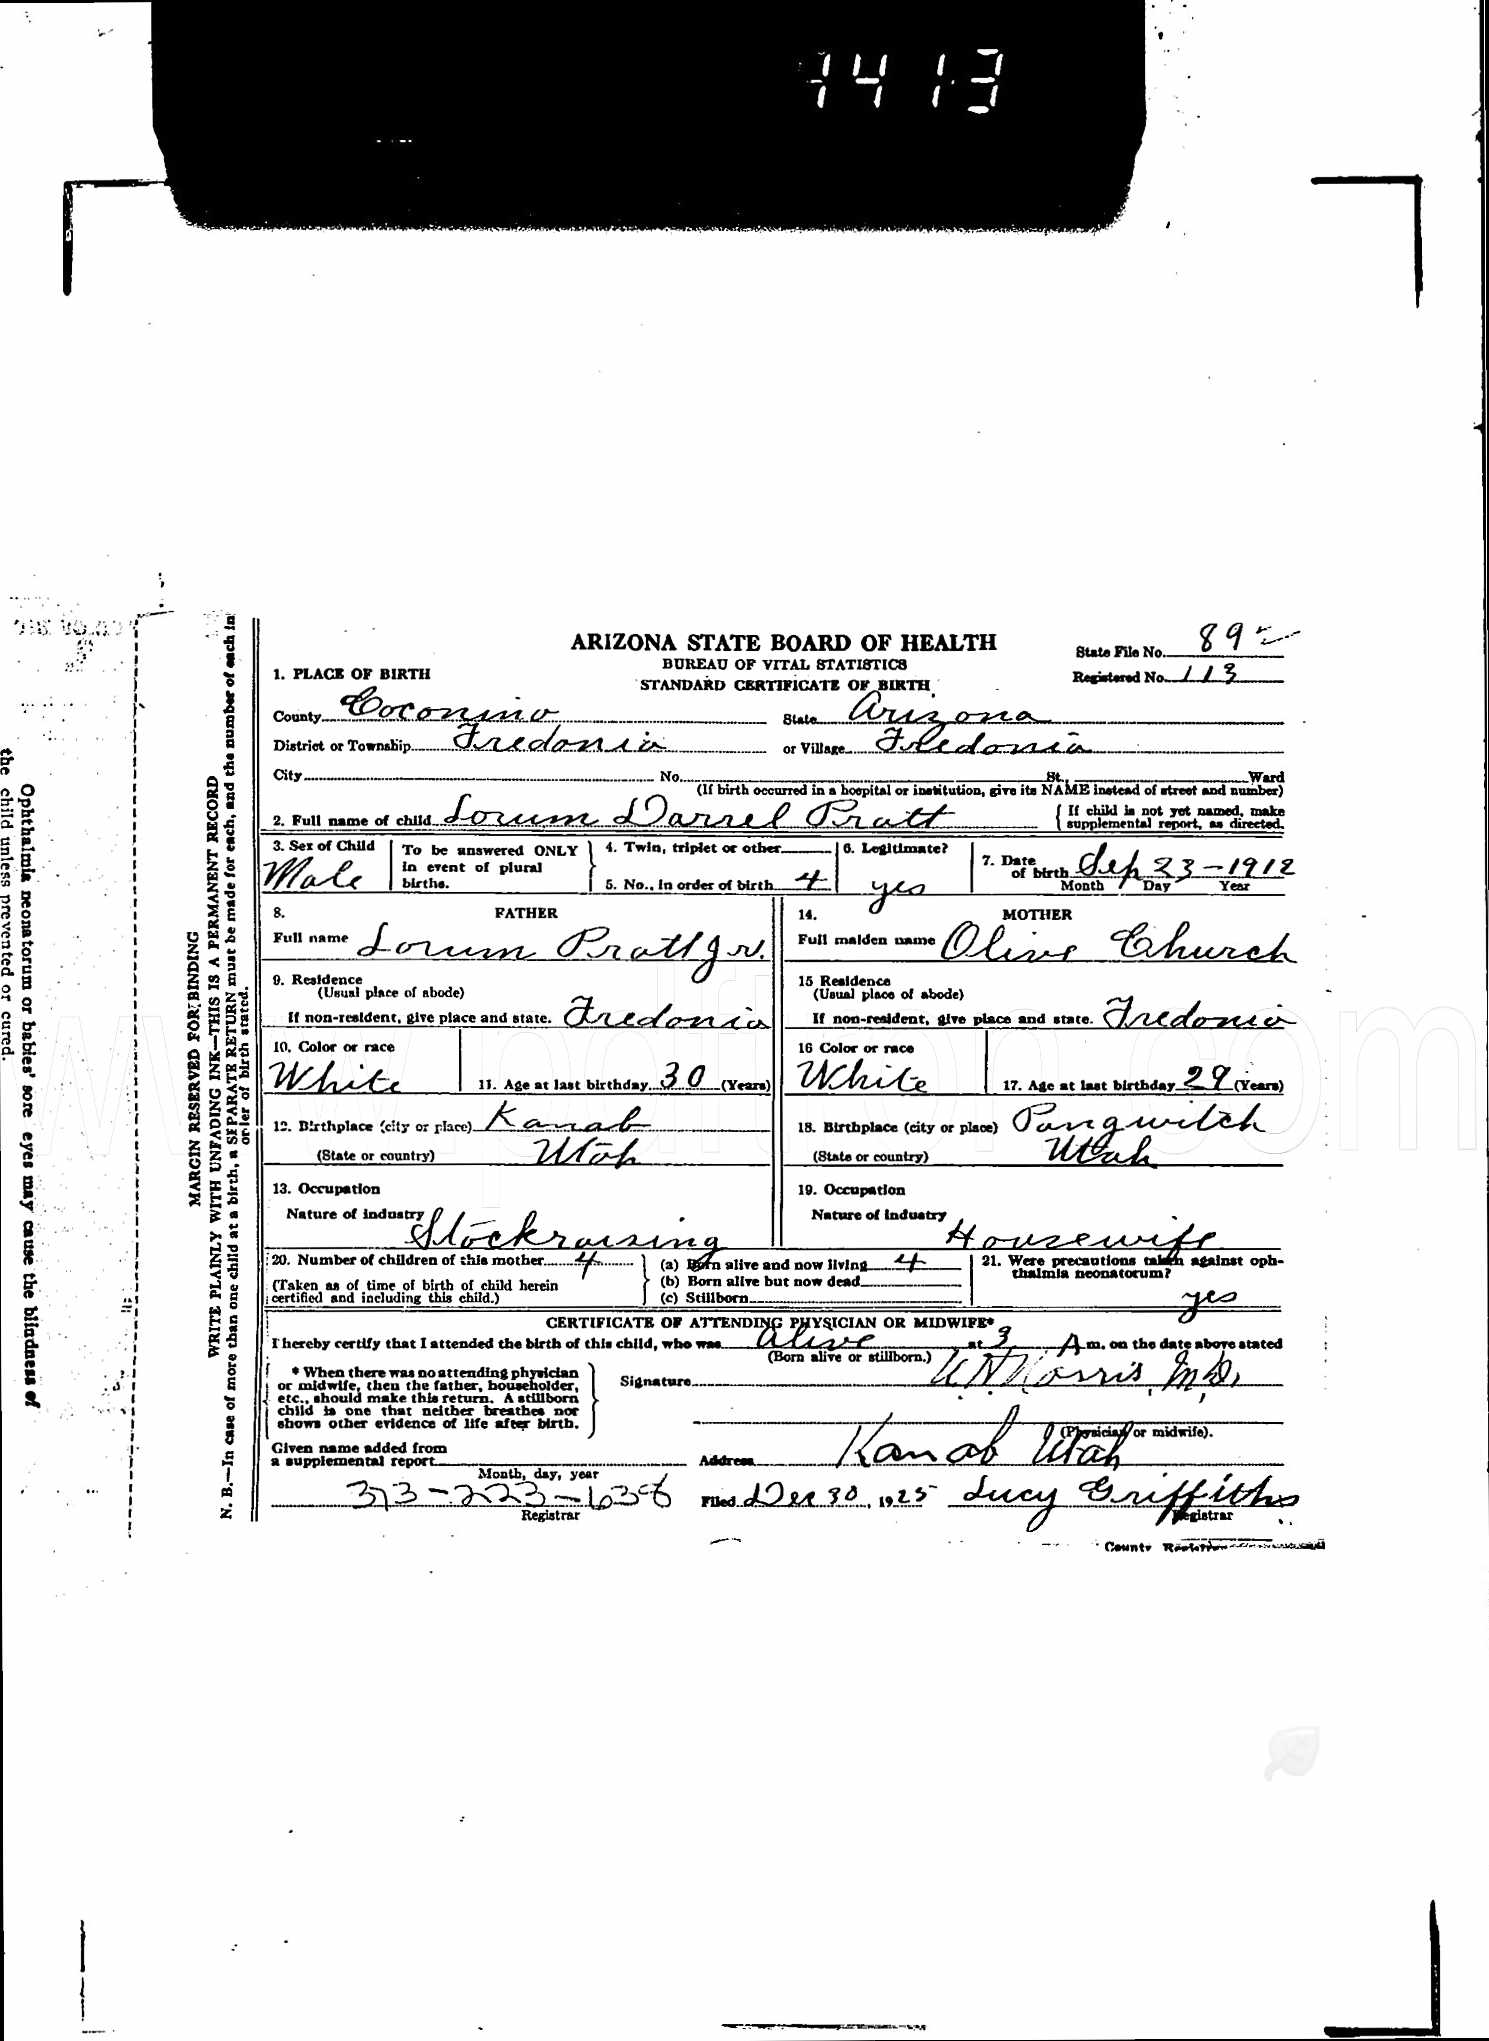 1413
ARIZONA STATE BOARD OF HEALTH
BUREAU OF VITAL STATISTICS
STANDARD CERTIFICATE OF BIRTH
State File No. 89
Registered No. 113
1. PLACE OF BIRTH
County Coconino State Arizona
District or Township Fredonia or Village Fredonia
City No. St., Ward
(If birth occurred in a hospital or institution, give its NAME instead of street and number)
2. Full name of child Lorum Darrel Pratt { If child is not yet named, make supplemental report, as directed.
3. Sex of Child Male
To be answered ONLY in event of plural births.
4. Twin, triplet or other
5. No., in order of birth 4
6. Legitimate? yes
7. Date of birth Sep 23-1912
Month Day Year
8. FATHER
Full name Lorum Pratt Jr.
9. Residence
(Usual place of abode)
If non-resident, give place and state. Fredonia
10. Color or race White
11. Age at last birthday 30 (Years)
12. Birthplace (city or place) Kanab
(State or country) Utah
13. Occupation
Nature of industry Stockraising
14. MOTHER
Full maiden name Olive Church
15 Residence
(Usual place of abode)
If non-resident, give place and state. Fredonia
16 Color or race White
17. Age at last birthday 29 (Years)
18. Birthplace (city or place) Pangwitch
(State or country) Utah
19. Occupation
Nature of industry Housewife
20. Number of children of this mother 4
(Taken as of time of birth of child herein certified and including this child.)
(a) Born alive and now living 4
(b) Born alive but now dead
(c) Stillborn
21. Were precautions taken against ophthalmia neonatorum?
yes
CERTIFICATE OF ATTENDING PHYSICIAN OR MIDWIFE*
I hereby certify that I attended the birth of this child, who was Alive at 3 A m. on the date above stated
(Born alive or stillborn.)
* When there was no attending physician
or midwife, then the father, householder,
etc., should make this return. A stillborn
child is one that neither breathes nor
shows other evidence of life after birth.
Signature Norris, M.D.
(Physician or midwife).
Given name added from
a supplemental report
Month, day, year
Address Kanab Utah
373-223-638
Registrar
Filed Dec 30, 1925 Lucy Griffiths
Registrar
County Registrar
MARGIN RESERVED FOR BINDING
WRITE PLAINLY WITH UNFADING INK—THIS IS A PERMANENT RECORD
N. B.—In case of more than one child at a birth, a SEPARATE RETURN must be made for each, and the number of each in
order of birth stated.
Ophthalmia neonatorum or babies' sore eyes may cause the blindness of
the child unless prevented or cured.